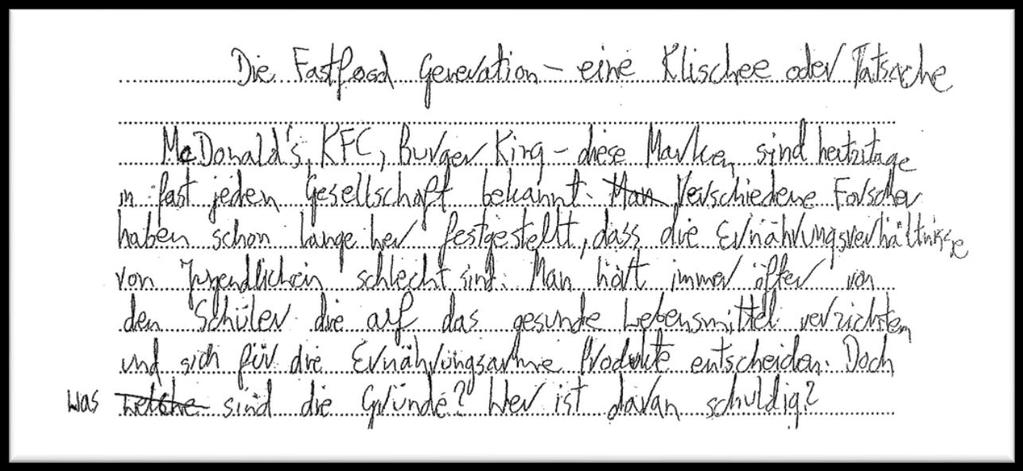 Die Fastfood Generation – eine Klischee oder Tatsache
McDonald's, KFC, Burger King – diese Marken, sind heutzitage
in fast jeden Gesellschaft bekannt. Man Verschiedene Forscher
haben schon lange her festgestellt, dass die Ernährungsverhältnisse
von Jugendlichen schlecht sind. Man hört immer öfter von
den Schüler die auf das gesunde Lebensmittel verzichten
und sich für die Ernährungsarme Produkte entscheiden. Doch
was welche sind die Gründe? Wer ist daran schuldig?